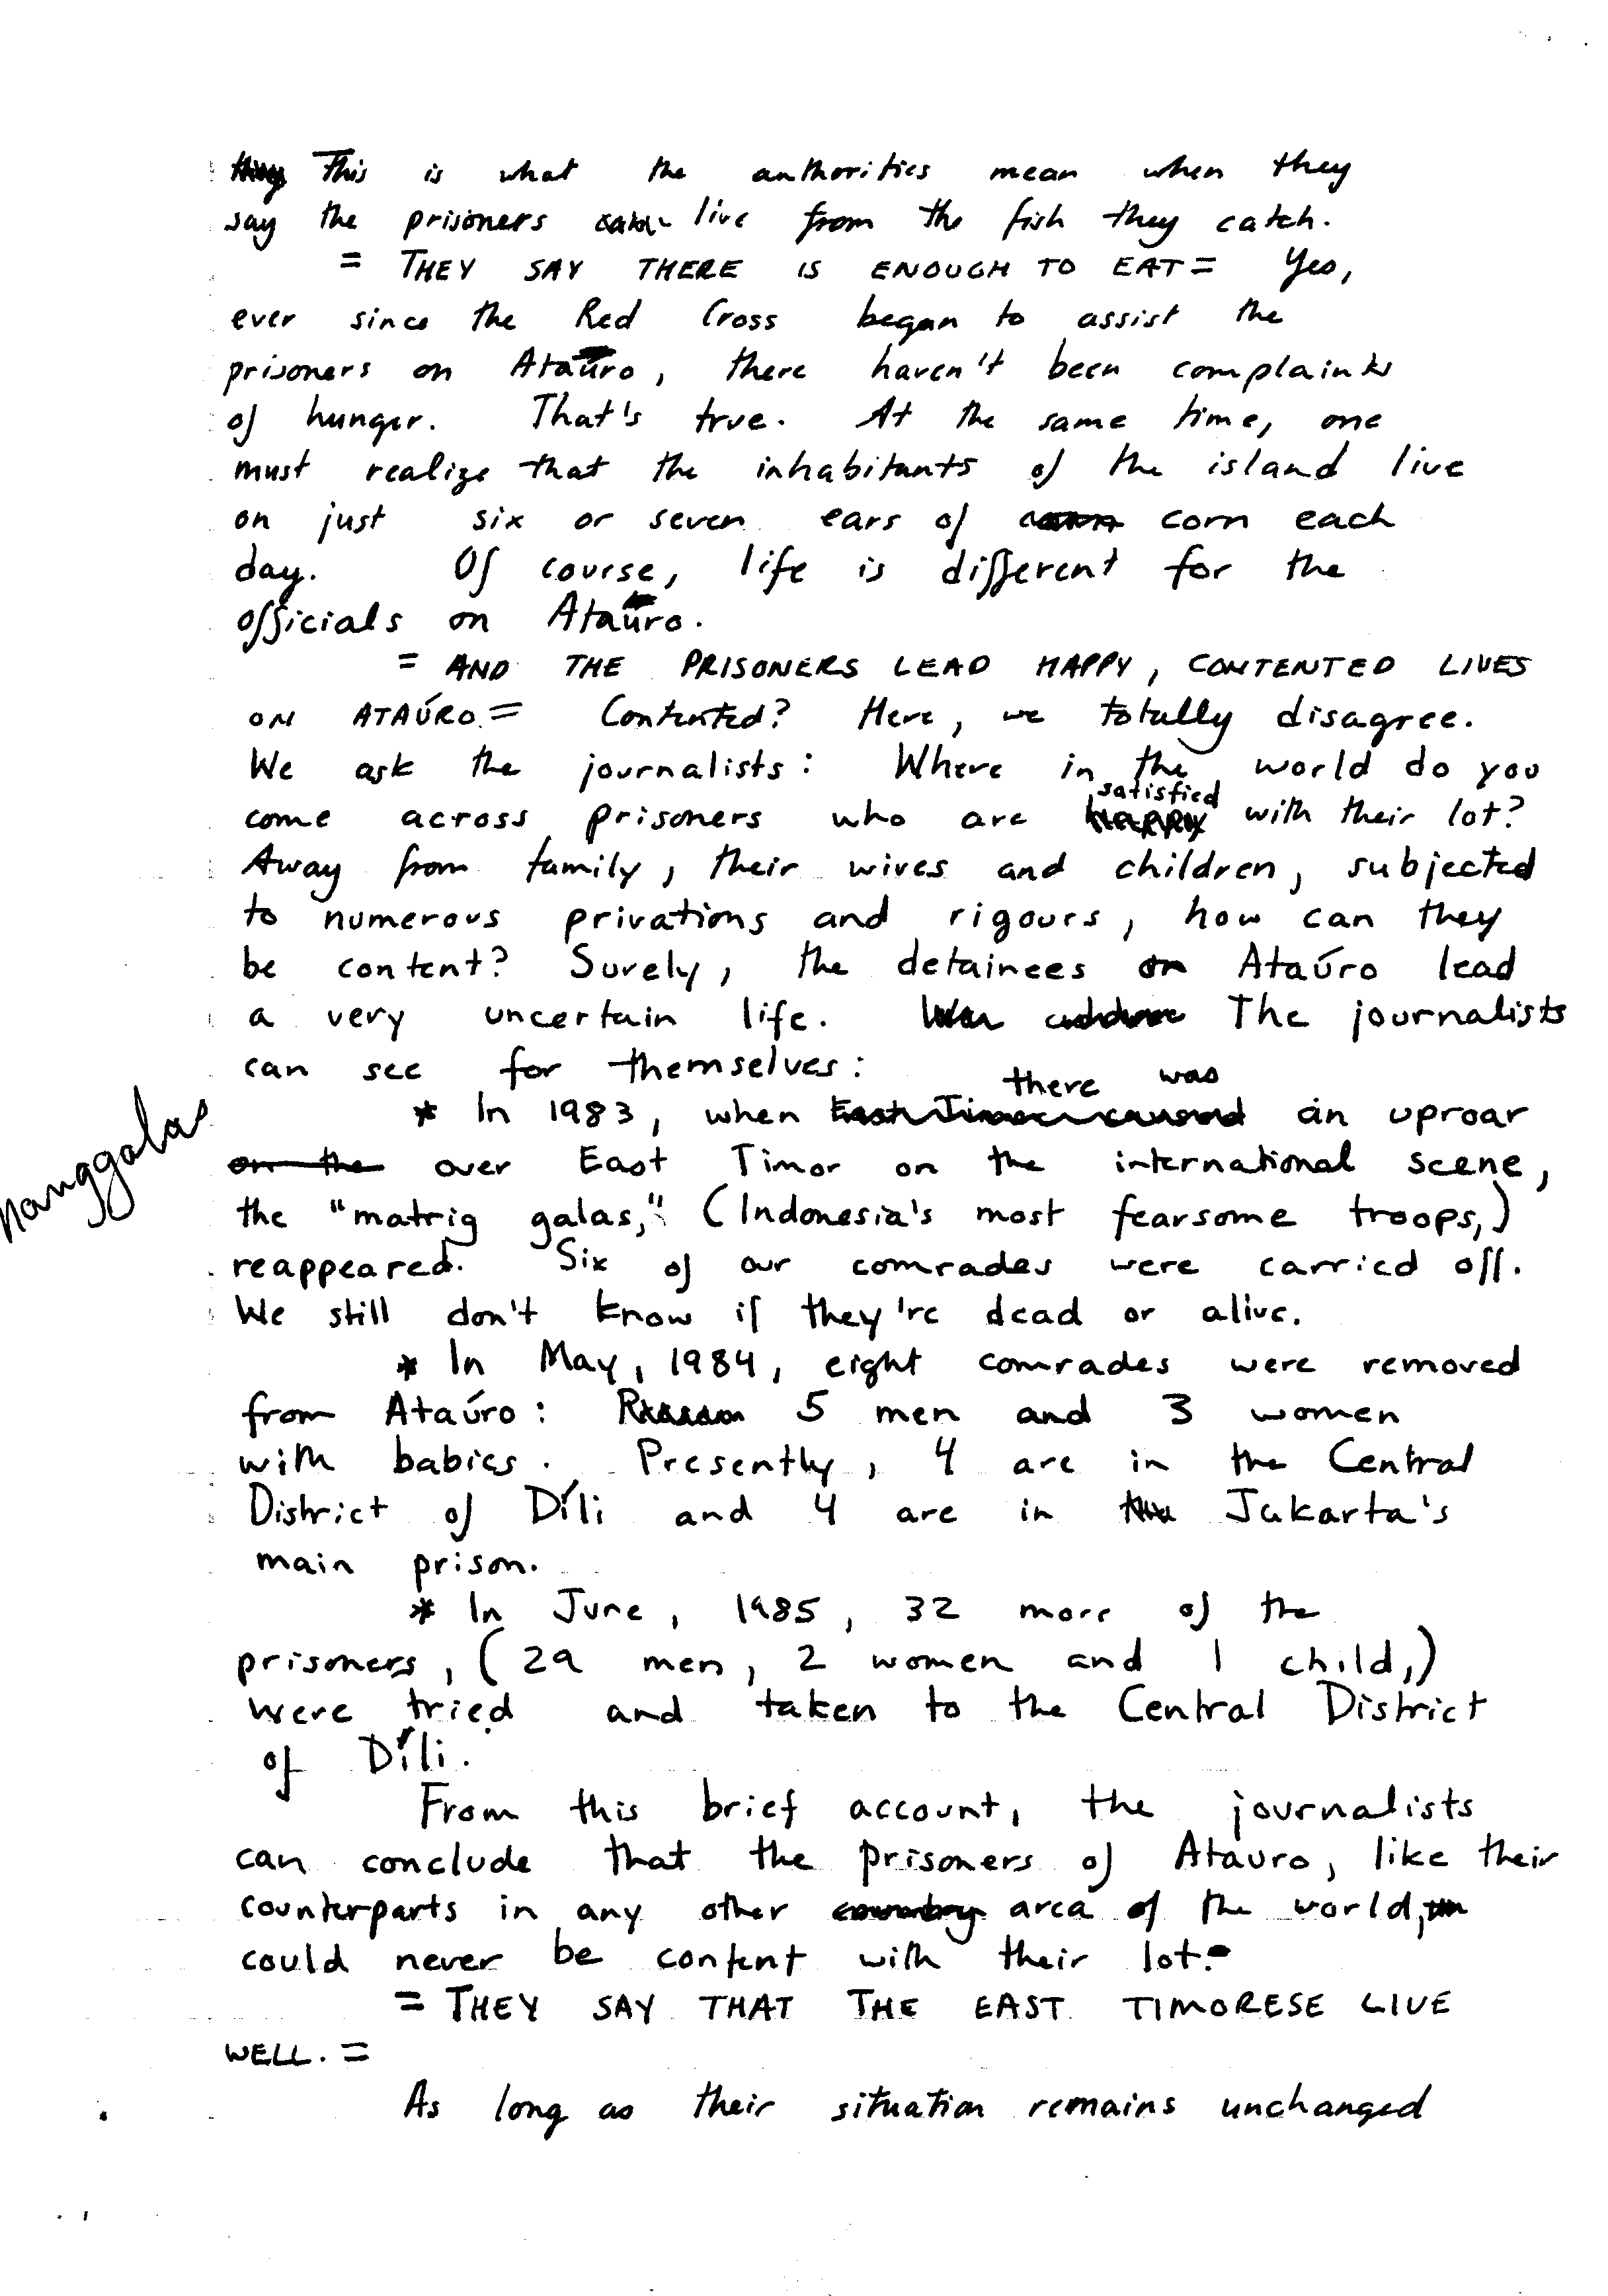 This is what the authorities mean when they
say the prisoners live from the fish they catch.
= THEY SAY THERE IS ENOUGH TO EAT = Yes,
ever since the Red Cross began to assist the
prisoners on Ataúro, there haven't been complaints
of hunger. That's true. At the same time, one
must realize that the inhabitants of the island live
on just six or seven ears of corn each
day. Of course, life is different for the
officials on Ataúro.
= AND THE PRISONERS LEAD HAPPY, CONTENTED LIVES
ON ATAÚRO. = Contented? Here, we totally disagree.
We ask the journalists: Where in the world do you
satisfied
come across prisoners who are happy with their lot?
Away from family, their wives and children, subjected
to numerous privations and rigours, how can they
be content? Surely, the detainees on Ataúro lead
a very uncertain life. The journalists
can see for themselves:
there was
* In 1983, when East Timor caused an uproar
on the over East Timor on the international scene,
nanggalas
the "matrig galas," (Indonesia's most fearsome troops,)
reappeared. Six of our comrades were carried off.
We still don't know if they're dead or alive.
* In May, 1984, eight comrades were removed
from Ataúro: 5 men and 3 women
with babies. Presently, 4 are in the Central
District of Díli and 4 are in the Jakarta's
main prison.
* In June, 1985, 32 more of the
prisoners, (29 men, 2 women and 1 child,)
were tried and taken to the Central District
of Díli.
From this brief account, the journalists
can conclude that the prisoners of Atauro, like their
counterparts in any other country area of the world,
could never be content with their lot.
= THEY SAY THAT THE EAST TIMORESE LIVE
WELL. =
As long as their situation remains unchanged